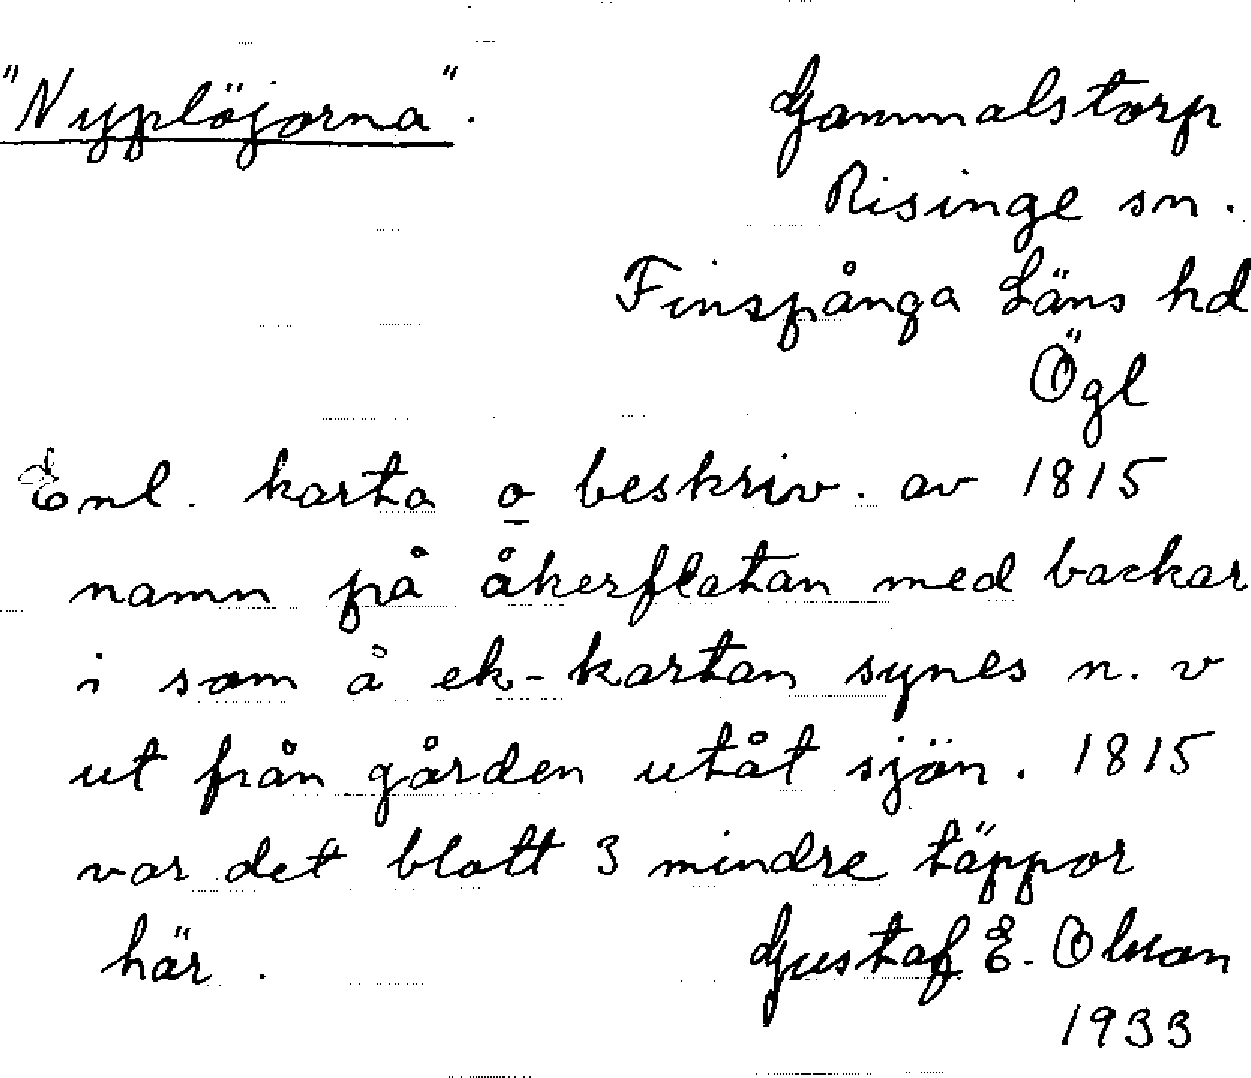 "Nyplöjorna".
Gammalstorp
Risinge sn.
Finspånga Läns hd
Ögl
Enl. karta o beskriv. av 1815
namn på åkerflatan med backar
i som å ek-kartan synes n. v
ut från gården utåt sjön. 1815
var det blott 3 mindre täppor
här.
Gustaf E. Olsson
1933